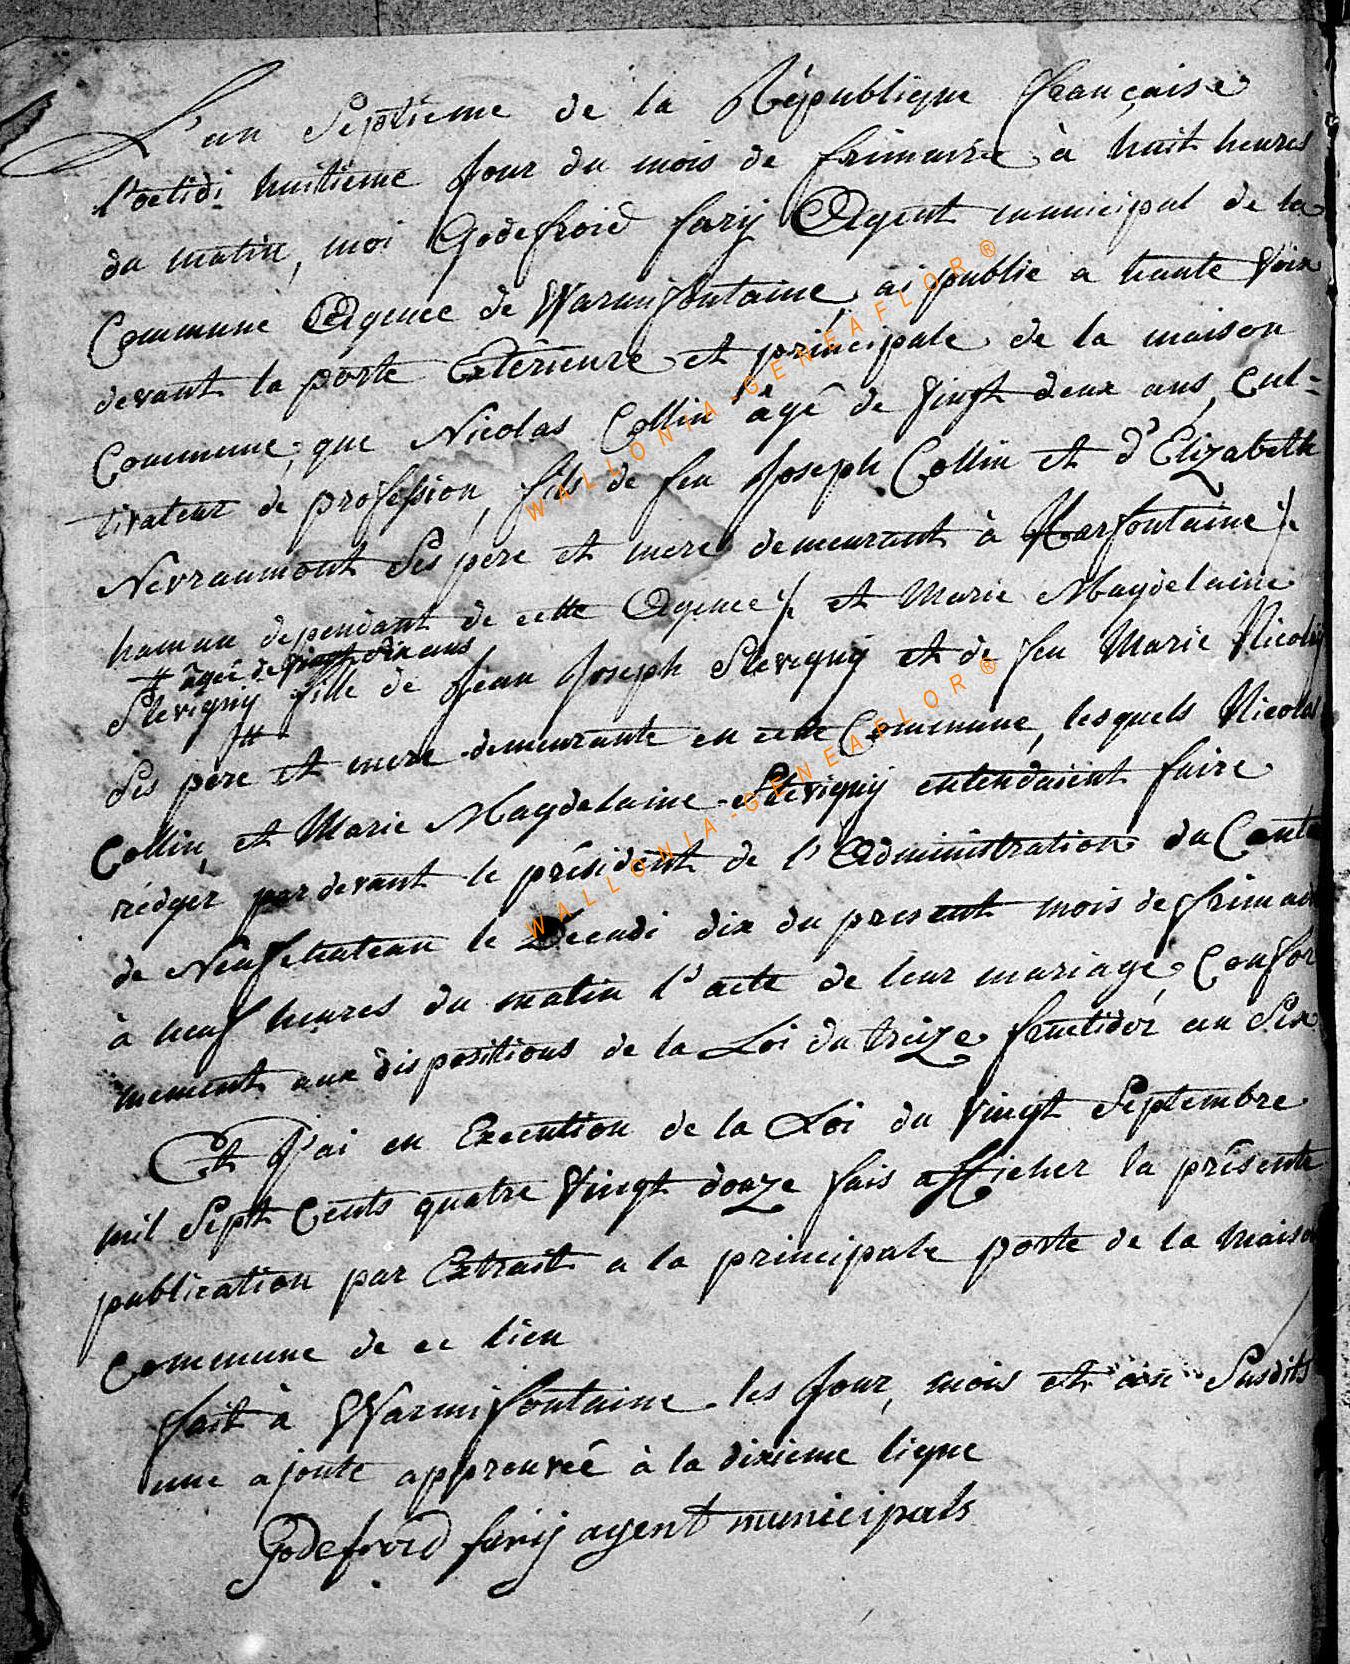 L'an Septieme de la République française
l'octidi huitieme jour du mois de frimaire à huit heures
du matin, moi Godefroid farij Agent municipal de la
Commune Agence de Warmifontaine, ai publié a haute Voix
devant la porte Extérieure et principale de la maison
Commune, que Nicolas Collin âgé de Vingt deux ans, Cul=
tivateur de profession, fils de feu Joseph Collin et d'Elizabeth
Nevraumont Ses pere et mere demeurant à Harfontaine /.
hamau dependant de cette Agence /. et Marie Magdelaine
# âgée de Vingt dix ans
Slevigny # fille de Jean Joseph Slevigny et de feu Marie Nicolas
Ses pere et mere demeurante en cette Commune, lesquels Nicolas
Collin, et Marie Magdelaine Slevigny entendaient faire
rédger pardevant le président de l'Administration du Canto
de Neufchateau le Decadi dix du present mois de frimair
à neuf heures du matin l'acte de leur mariage, Confor
mement aux dispositions de la Loi du treize fructidor an Six
Et J'ai en Execution de la Loi du Vingt Septembre
mil Sept Cents quatre Vingt douze fais afficher la présente
publication par Extrait a la principale porte de la maiso
Commune de ce lieu
fait à Warmifontaine les Jour, mois et an Susdits
une ajoute approuvée à la dixieme ligne
Godefroid farij agent municipals
WALLONIA-GENEAFLOR®
WALLONIA-GENEAFLOR®